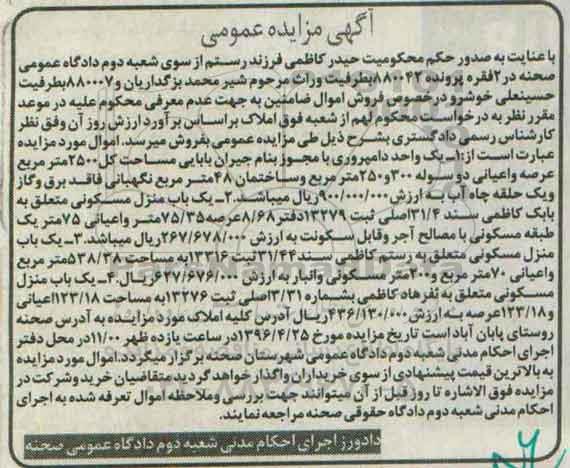 آگهی مزایده عمومی
با عنایت به صدور حکم محکومیت حیدر کاظمی فرزند رستم از سوی شعبه دوم دادگاه عمومی
صحنه در ۲فقره پرونده ۸۸۰۰۴۲بطرفیت وراث مرحوم شیر محمد بزگداریان و۸۸۰۰۰۷بطرفیت
حسینعلی خوشرو درخصوص فروش اموال ضامنین به جهت عدم معرفی محکوم علیه در موعد
مقرر نظر به درخواست محکوم لهم از شعبه فوق املاک براساس برآورد ارزش روز آن وفق نظر
کارشناس رسمی دادگستری بشرح ذیل طی مزایده عمومی بفروش میرسد. اموال مورد مزایده
عبارت است از:۱ـ یک واحد دامپروری با مجوز بنام جیران بابایی مساحت کل ۲۵۰۰متر مربع
عرصه واعیانی دو سوله ۳۰۰و۲۵۰متر مربع وساختمان ۴۸متر مربع نگهبانی فاقد برق وگاز
ویک حلقه چاه آب به ارزش۹۰۰/۰۰۰/۰۰۰ریال میباشد.۲ـ یک باب منزل مسکونی متعلق به
بابک کاظمی سند ۳۱/۴اصلی ثبت ۱۳۲۷۹دفتر۸/۶۸عرصه۷۵/۳۵متر واعیانی ۷۵متر یک
طبقه مسکونی با مصالح آجر وقابل سکونت به ارزش ۲۶۷/۶۷۸/۰۰۰ریال میباشد.۳ـ یک باب
منزل مسکونی متعلق به رستم کاظمی سند۳۱/۴۴ثبت ۱۳۳۱۶به مساحت ۵۳۸/۳۸متر مربع
واعیانی ۷۰متر مربع و۲۰۰متر مسکونی وانبار به ارزش ۶۲۷/۶۷۶/۰۰۰ریال.۴ـ یک باب منزل
مسکونی متعلق به نفرهاد کاظمی بشماره ۳/۳۱اصلی ثبت ۱۳۲۷۶به مساحت ۱۲۳/۱۸اعیانی
و۱۲۳/۱۸عرصه به ارزش۴۳۶/۱۳۰/۰۰۰ریال آدرس کلیه املاک مورد مزایده به آدرس صحنه
روستای پایان آباد است تاریخ مزایده مورخ ۱۳۹۶/۴/۲۵در ساعت یازده ظهر ۱۱/۰۰در محل دفتر
اجرای احکام مدنی شعبه دوم دادگاه عمومی شهرستان صحنه برگزار میگردد.اموال مورد مزایده
به بالاترین قیمت پیشنهادی از سوی خریداران واگذار خواهد گردید متقاضیان خرید وشرکت در
مزایده فوق الاشاره تا روز قبل از آن میتوانند جهت بررسی وملاحظه اموال تعرفه شده به اجرای
احکام مدنی شعبه دوم دادگاه حقوقی صحنه مراجعه نمایند.
دادورز اجرای احکام مدنی شعبه دوم دادگاه عمومی صحنه